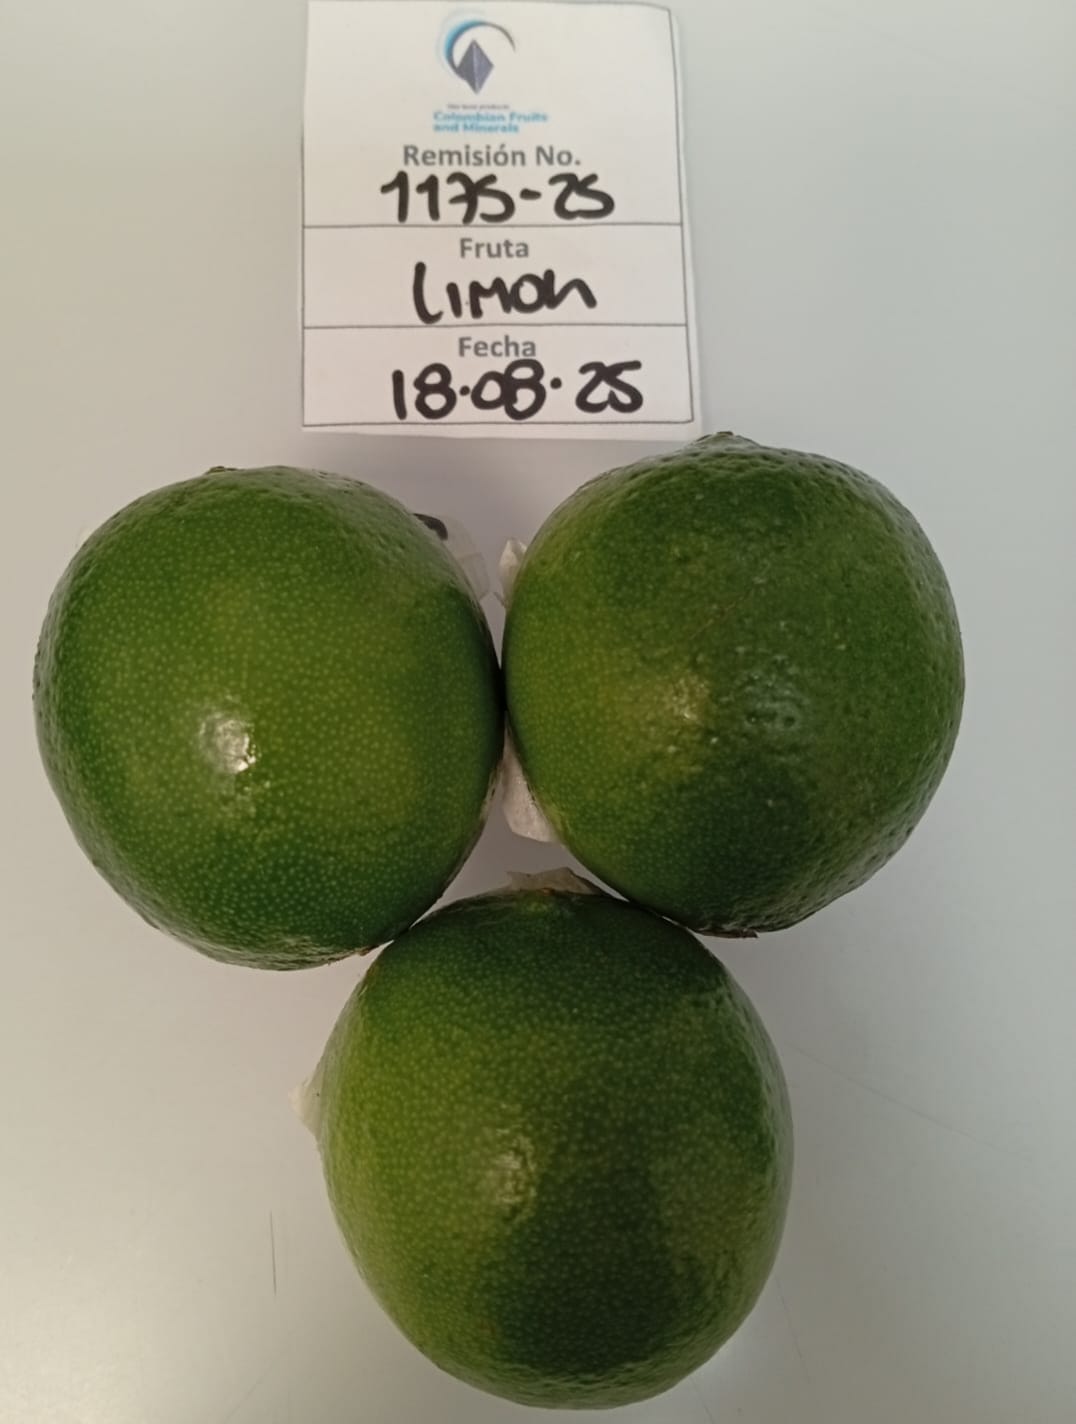 Colombian Fruits
and Minerals
Remisión No.
1175-25
Fruta
Limon
Fecha
18.08.25